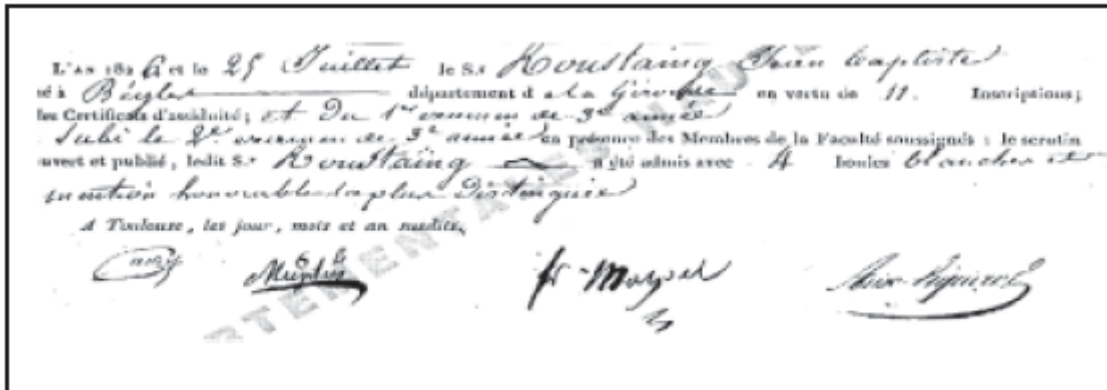 L'AN 1826 et le 25 Juillet le S.r Roustaing Jean baptiste
né à Bègles département d e la Gironde en vertu de 11. Inscriptions;
des Certificats d'assiduité; et du 1er examen de 3e année
Subi le 2e examen de 3e année en présence des Membres de la Faculté soussignés: le scrutin
ouvert et publié, ledit S.r Roustaing a été admis avec 4 boules blanches et
mention honorable la plus Distinguée
A Toulouse, les jour, mois et an susdits,